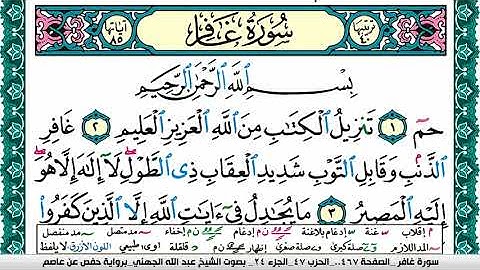 ترتيبها ٤٠ سُورَةُ غَافِر آياتها ٨٥
بِسْمِ ٱللَّهِ ٱلرَّحْمَٰنِ ٱلرَّحِيمِ
حمٓ ١ تَنزِيلُ ٱلْكِتَٰبِ مِنَ ٱللَّهِ ٱلْعَزِيزِ ٱلْعَلِيمِ ٢ غَافِرِ
ٱلذَّنۢبِ وَقَابِلِ ٱلتَّوْبِ شَدِيدِ ٱلْعِقَابِ ذِى ٱلطَّوْلِ ۖ لَآ إِلَٰهَ إِلَّا هُوَ ۖ
إِلَيْهِ ٱلْمَصِيرُ ٣ مَا يُجَٰدِلُ فِىٓ ءَايَٰتِ ٱللَّهِ إِلَّا ٱلَّذِينَ كَفَرُوا۟
م إقلاب غنة إدغام بلاغنة إدغام إخفاء مد متصل مد منفصل
المد اللازم صلة كبرى وصلة صغرى إظهار قلقلة أوى، طبيعي اللون الأزرق: لا يلفظ
سورة غافر. الصفحة ٤٦٧. الحزب ٤٧. الجزء ٢٤. بصوت الشيخ عبد الله الجهني. برواية حفص عن عاصم